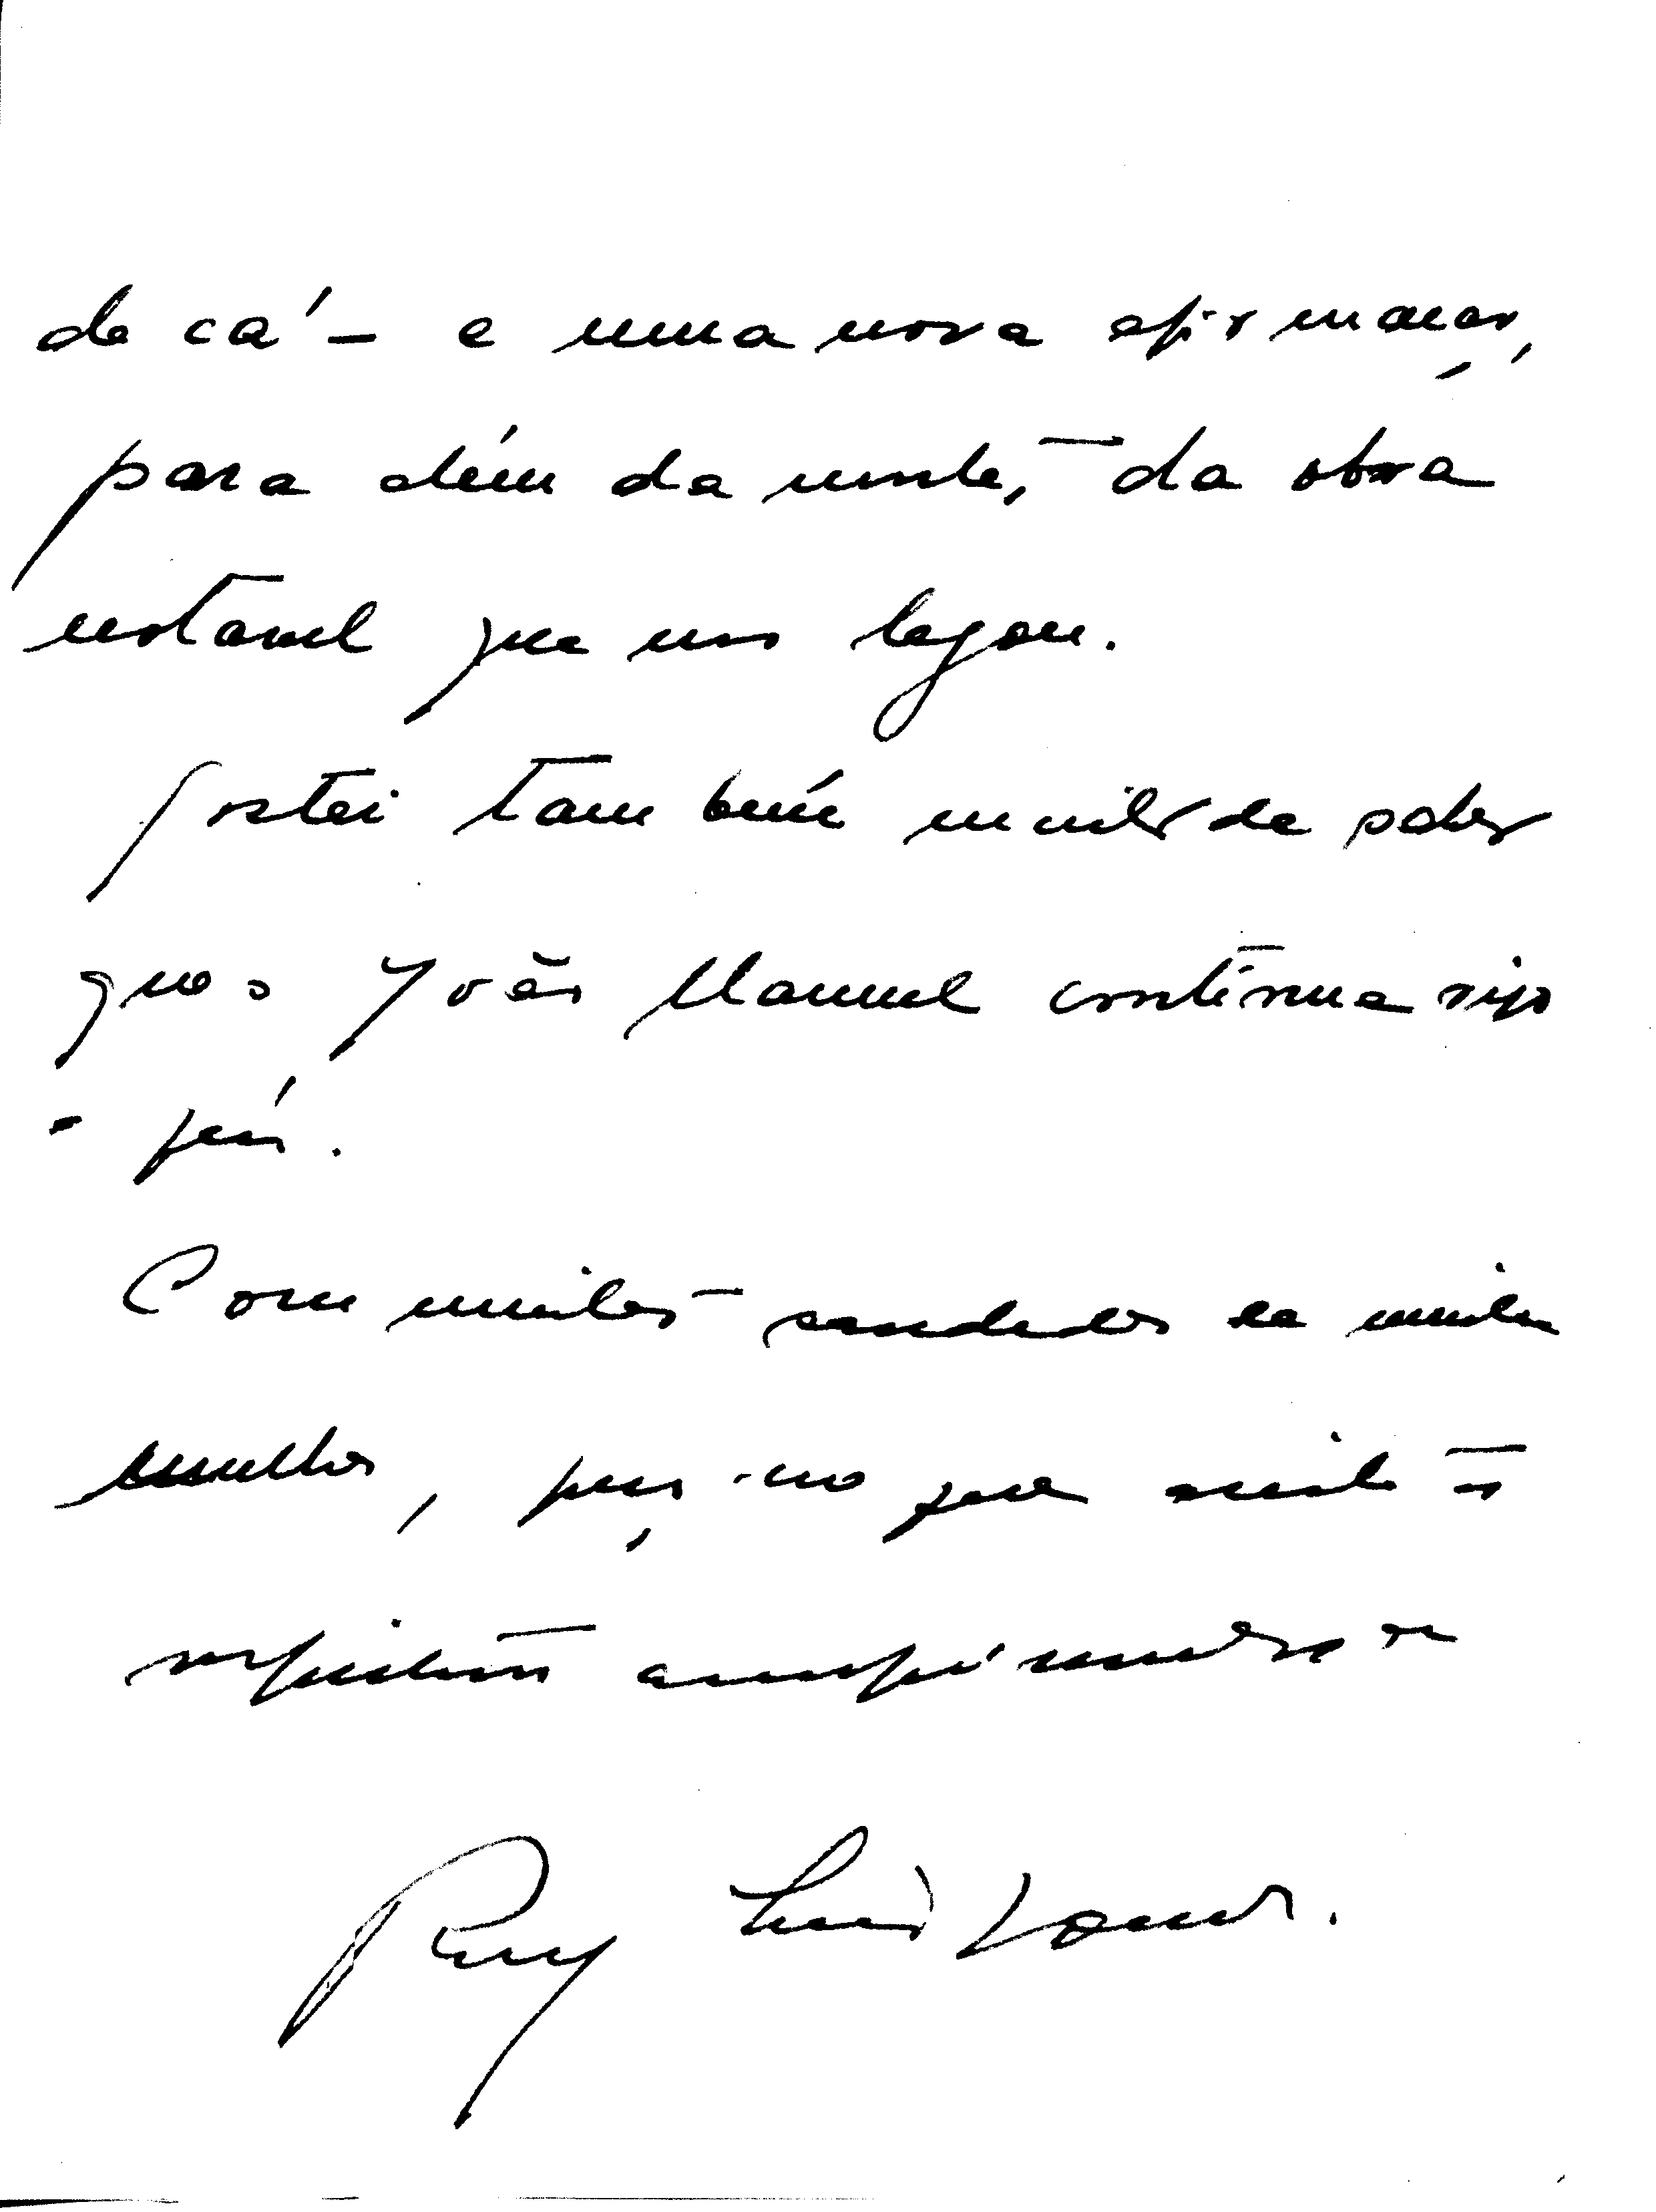 de cá - e uma nova afirmação,
para além da morte, da obra
notavel que nos legou.
Gostei também muito de saber
que o João Manuel continua rijo
e fiér.
Com muitas saudades da minha
mulher, peço-no que aceite os
respeitosos cumprimentos de
Ruy Luís Gomes.